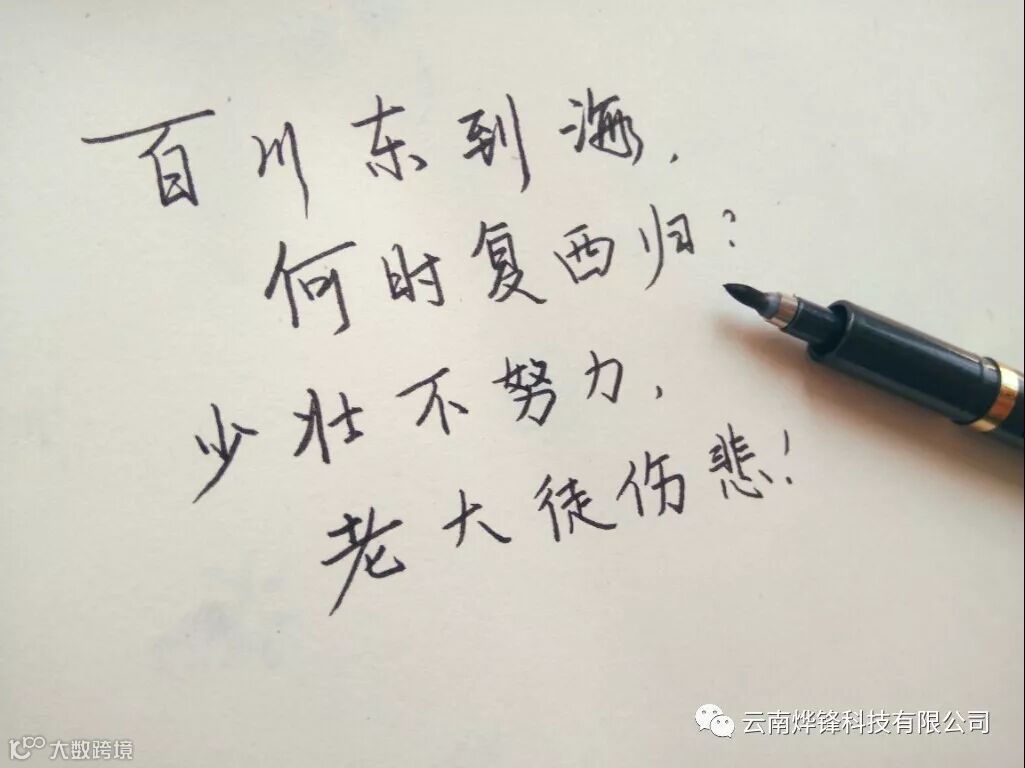 百川东到海，
何时复西归？
少壮不努力，
老大徒伤悲！
云南烨锋科技有限公司
大数跨境